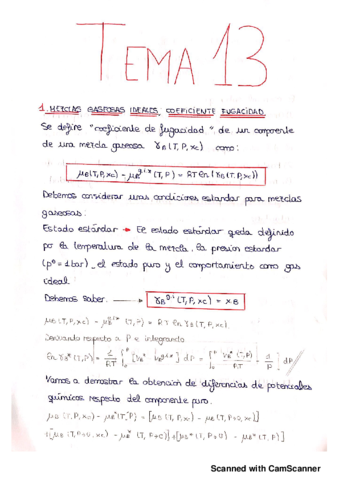 TEMA 13
1. MEZCLAS GASEOSAS IDEALES, COEFICIENTE FUGACIDAD.
Se define "coeficiente de fugacidad" de un componente
de una mezcla gaseosa γB (T, P, xC) como:
μB(T,P,xC) - μB^g.i* (T, P) = RT ln (γB (T,P,xC))
Debemos considerar unas condiciones estandar para mezclas
gaseosas:
Estado estándar → El estado estándar queda definido
por la temperatura de la mezcla, la presion estandar
(p° = 1bar), el estado puro y el comportamiento como gas
ideal.
Debemos saber. → γB^g.i (T,P, xC) = xB
μB (T, P, xC) - μB^g.i* (T, P) = RT ln γB (T, P, xC)
Derivando respecto a P e integrando
Vamos a demostrar la obtencion de diferencias de potenciales
químicos respecto del componente puro.